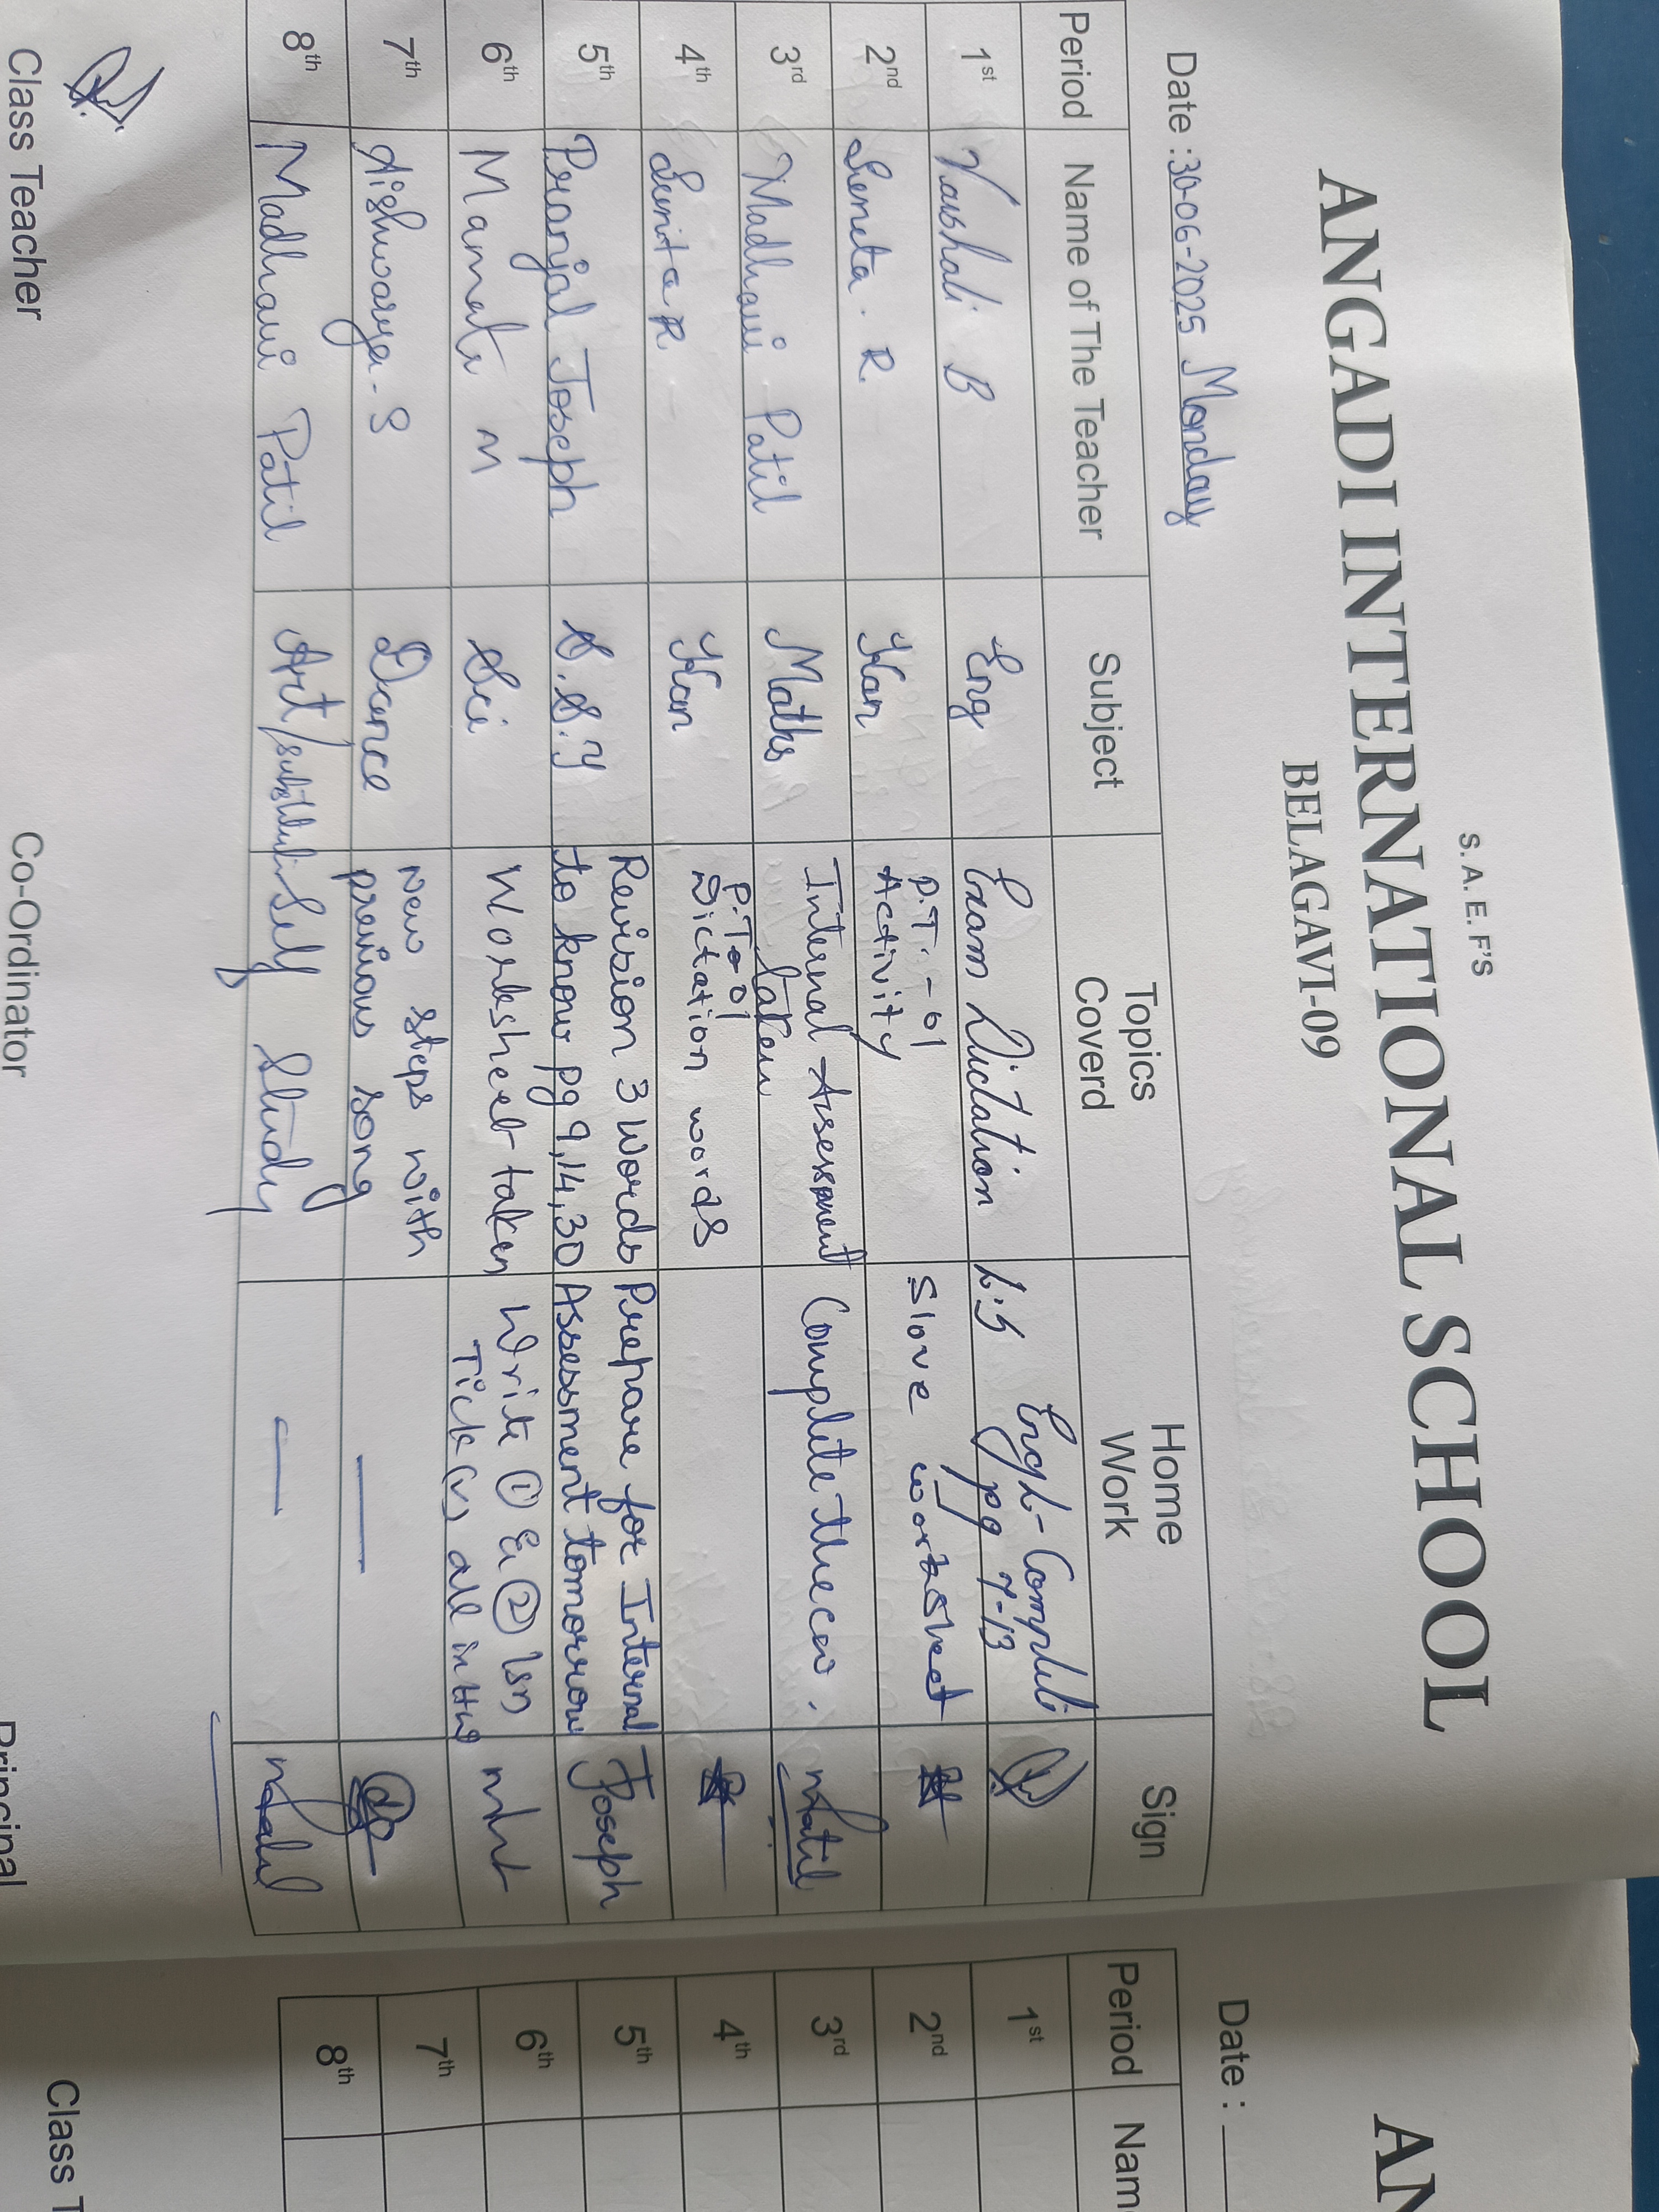 S. A. E. F'S
ANGADI INTERNATIONAL SCHOOL
BELAGAVI-09
Date : 30-06-2025 Monday
Period Name of The Teacher Subject Topics Coverd Home Work Sign
1st Vaishali B Eng Exam Dictation L:5 Engl- Complete pg 7-13
2nd Sunita. R. Kan P.T. - 01 Activity Slove worksheet
3rd Madhavi Patil Maths Internal Assessment taken Complete the cw.
4th Sunita R Kan P.T-01 Dictation words
5th Pranjal Joseph S.S.Y Revision 3 Words to know pg 9,14,30 Prepare for Internal Assessment tomorrow Joseph
6th Mamata M Sci Worksheet taken Write ① & ② lsn Tick (✓) all in HW
7th Aishwarya-S Dance New steps with previous song —
8th Madhavi Patil Art/ Self Study —
Class Teacher Co-Ordinator Principal
AN
Date :
Period Nam
1st
2nd
3rd
4th
5th
6th
7th
8th
Class T